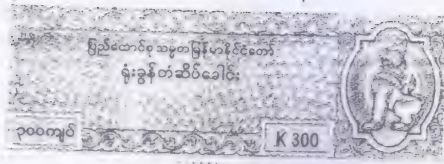 ပြည်ထောင်စု သမ္မတမြန်မာနိုင်ငံတော်
ရုံးခွန်တံဆိပ်ခေါင်း
၃၀၀ကျပ်
K 300